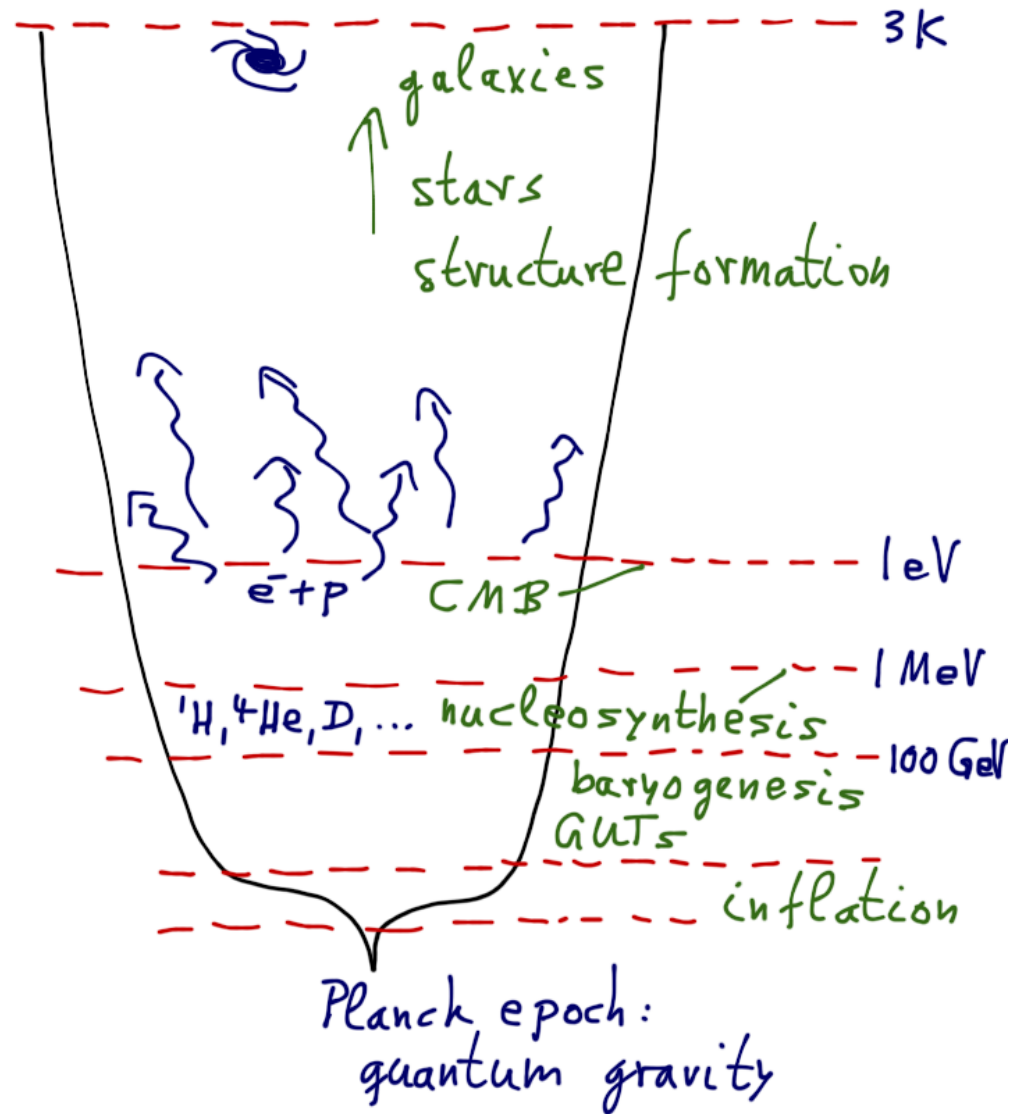 3K
galaxies
stars
structure formation
1eV
e⁻+p CMB
1 MeV
¹H, ⁴He, D, ... nucleosynthesis
100 GeV
baryogenesis
GUTs
inflation
Planck epoch:
quantum gravity